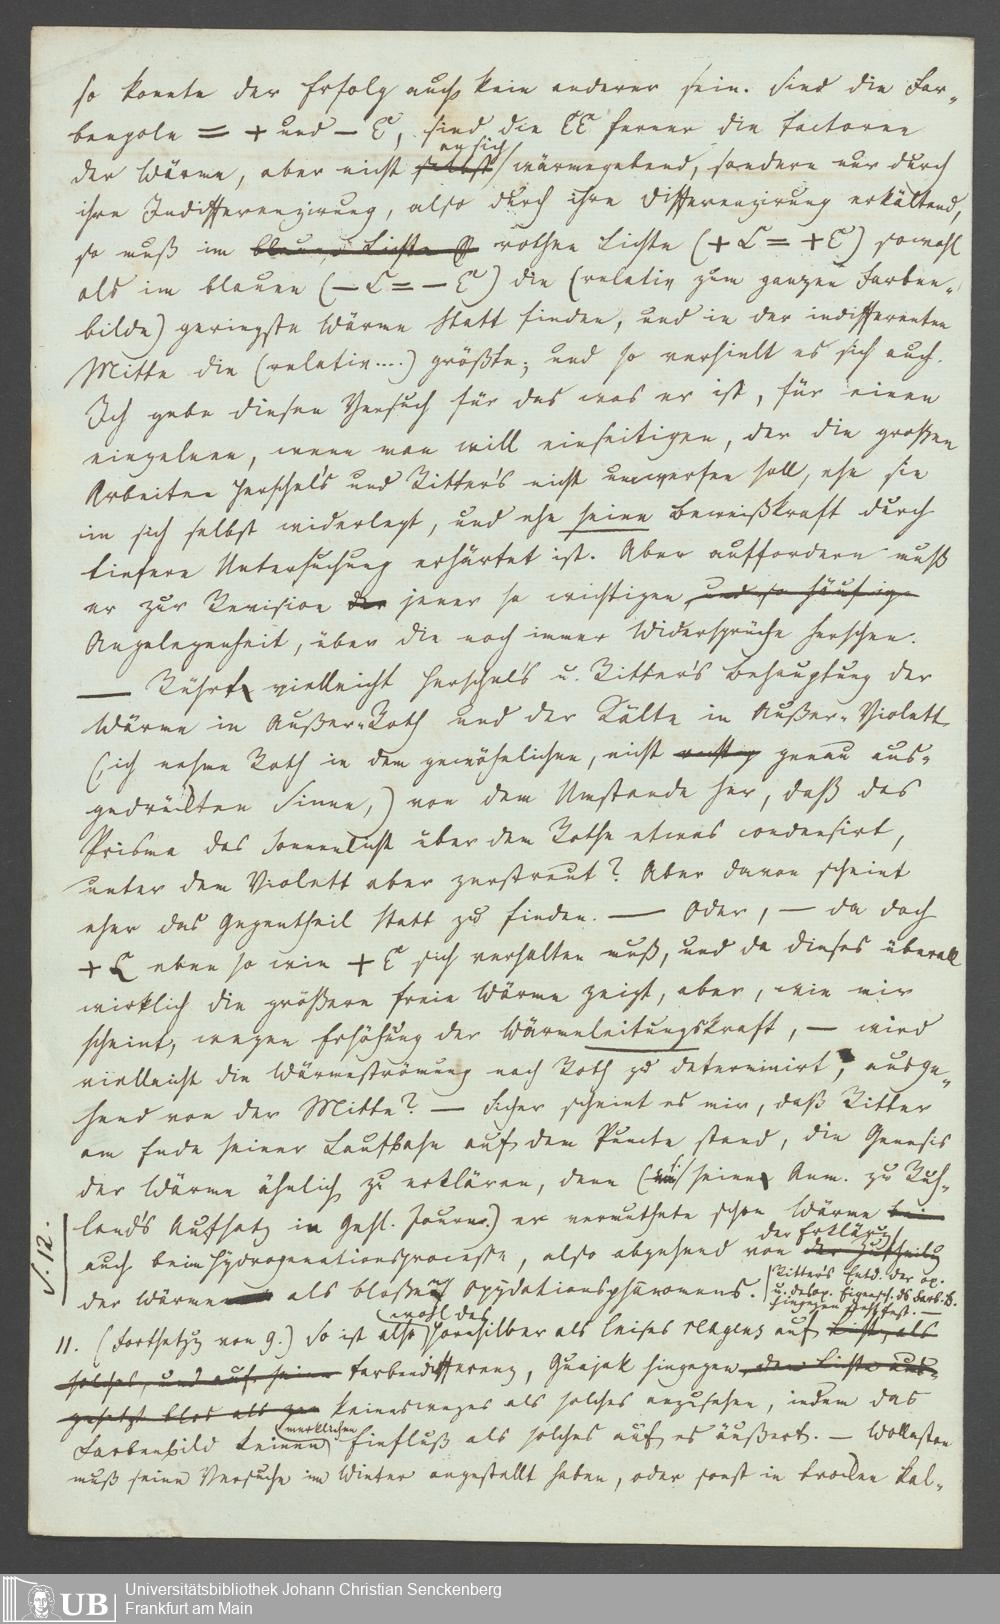 so konnte der Erfolg auch kein anderer sein. Sind die Far-
benpole = + und − E, sind die EE ferner die Factoren
der Wärme, aber nicht selbst an sich wärmegebend, sondern nur durch
ihre Indifferenzirung, also durch ihre Differenzirung erkältend,
so muß im blauen Lichte rothen Lichte (+ L = + E) sowohl
als im blauen (− L = − E) die (relativ zum ganzen Farben-
bilde) geringste Wärme Statt finden, und in der indifferenten
Mitte die (relativ....) größte; und so verhielt es sich auch.
Ich gebe diesen Versuch für das was er ist, für einen
einzelnen, wenn man will einseitigen, der die großen
Arbeiten Herschel's und Ritter's nicht umwerfen soll, ehe sie
in sich selbst widerlegt, und ehe seine Beweißkraft durch
tiefere Untersuchung erhärtet ist. Aber auffordern muß
er zur Revision der jener so wichtigen und so häufig
Angelegenheit, über die noch immer Widersprüche herschen.
— Rührt vielleicht Herschel's u. Ritter's Behauptung der
Wärme in Außer-Roth und der Kälte in Außer-Violett
(ich nehme Roth in dem gewöhnlichen, nicht genau aus-
gedrückten Sinne,) von dem Umstande her, daß das
Prisma das Sonnenlicht über dem Rothe etwas condensirt,
unter dem Violett aber zerstreut? Aber davon scheint
eher das Gegentheil Statt zu finden. — Oder, — da doch
+ L eben so wie + E sich verhalten muß, und da dieses überall
wirklich die größere freie Wärme zeigt, aber, wie mir
scheint, wegen Erhöhung der Wärmeleitungskraft, — wird
vielleicht die Wärmeströmung nach Roth zu determinirt, ausge-
hend von der Mitte? — Sicher scheint es mir, daß Ritter
am Ende seiner Laufbahn auf dem Puncte stand, die Genesis
der Wärme ähnlich zu erklären, denn (seine Anm. zu Ruh-
land's Aufsatz in Gehl. Journ.) er vermuthete schon Wärme bei
auch beim Hydrogenationsprocesse, also abgehend von der Erklärung
der Wärme als bloßen Oxydationsphänomens. Ritter's Entd. der ox.
u. desox. Eigensch. ds Farb. B.
hingegen steht fest. —
S. 12.
11. (Fortsetzg von 9.) So ist also wohl das Hornsilber als leises reagens auf Licht, als
solches, und auf seine Farbendifferenz, Guajak hingegen, dem Lichte aus-
gesetzt blos als keineswegs als solches anzusehen, indem das
Farbenbild keinen merklichen Einfluß als solches auf es äußert. — Wollaston
muß seine Versuche im Winter angestellt haben, oder sonst in trocken kal-
Universitätsbibliothek Johann Christian Senckenberg
Frankfurt am Main
UB